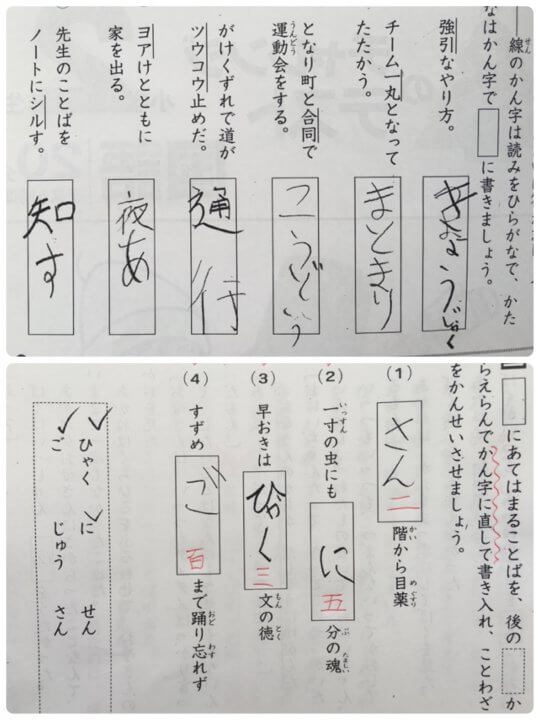 線のかん字は読みをひらがなで、かた
せん
なはかん字で に書きましょう。
強引なやり方。
チーム一丸となって
たたかう。
まとまり
となり町と合同で
運動会をする。
うんどう
がけくずれで道が
ツウコウ止めだ。
通行
ヨアけとともに
家を出る。
夜あ
先生のことばを
ノートにシルす。
知す
にあてはまることばを、後の か
らえらんでかん字に直して書き入れ、ことわざ
をかんせいさせましょう。
(1)
さん 二 階から目薬
かい めぐすり
(2)
一寸の虫にも に 五 分の魂
いっすん ぶ たましい
(3)
早おきは ひゃく 三 文の徳
もん とく
(4)
すずめ ご 百 まで踊り忘れず
おど わす
ひゃく に せん
ご じゅう さん